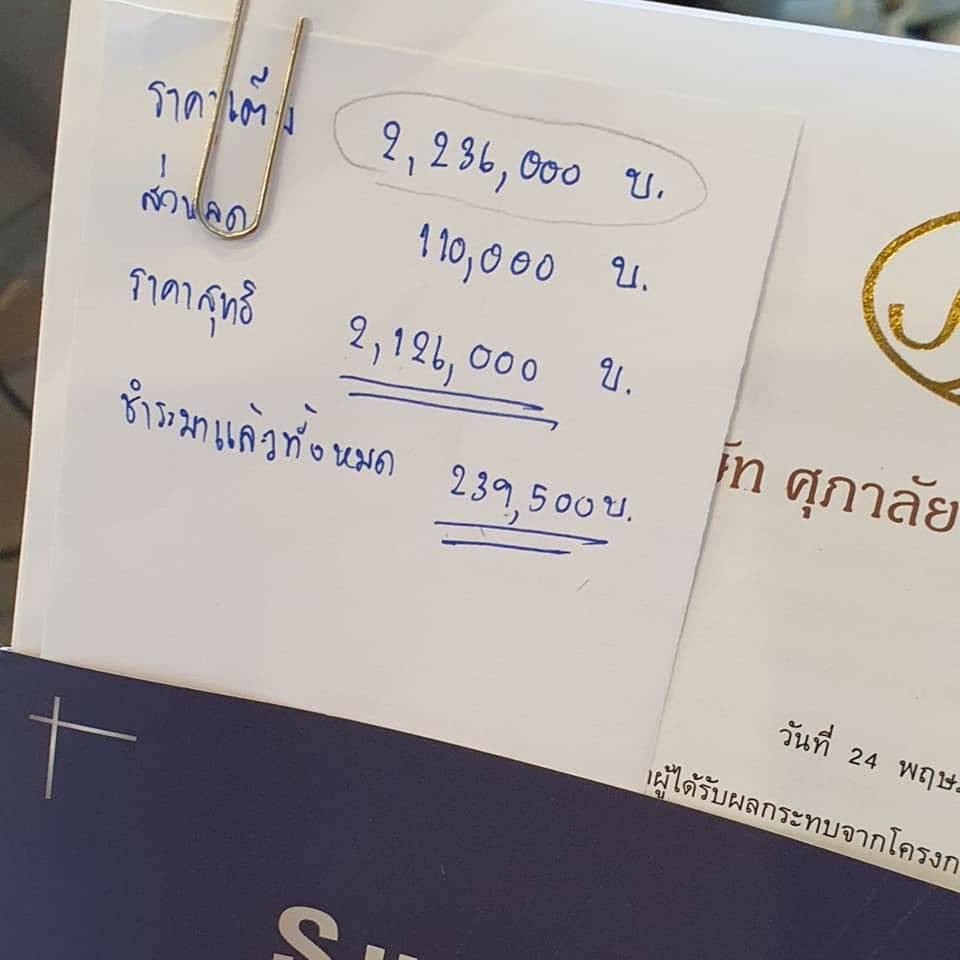 ราคาเต็ม 2,236,000 บ.
ส่วนลด 110,000 บ.
ราคาสุทธิ 2,126,000 บ.
ชำระมาแล้วทั้งหมด 239,500 บ.
ศุภาลัย
วันที่ 24
ผู้ได้รับผลกระทบจากโครงก